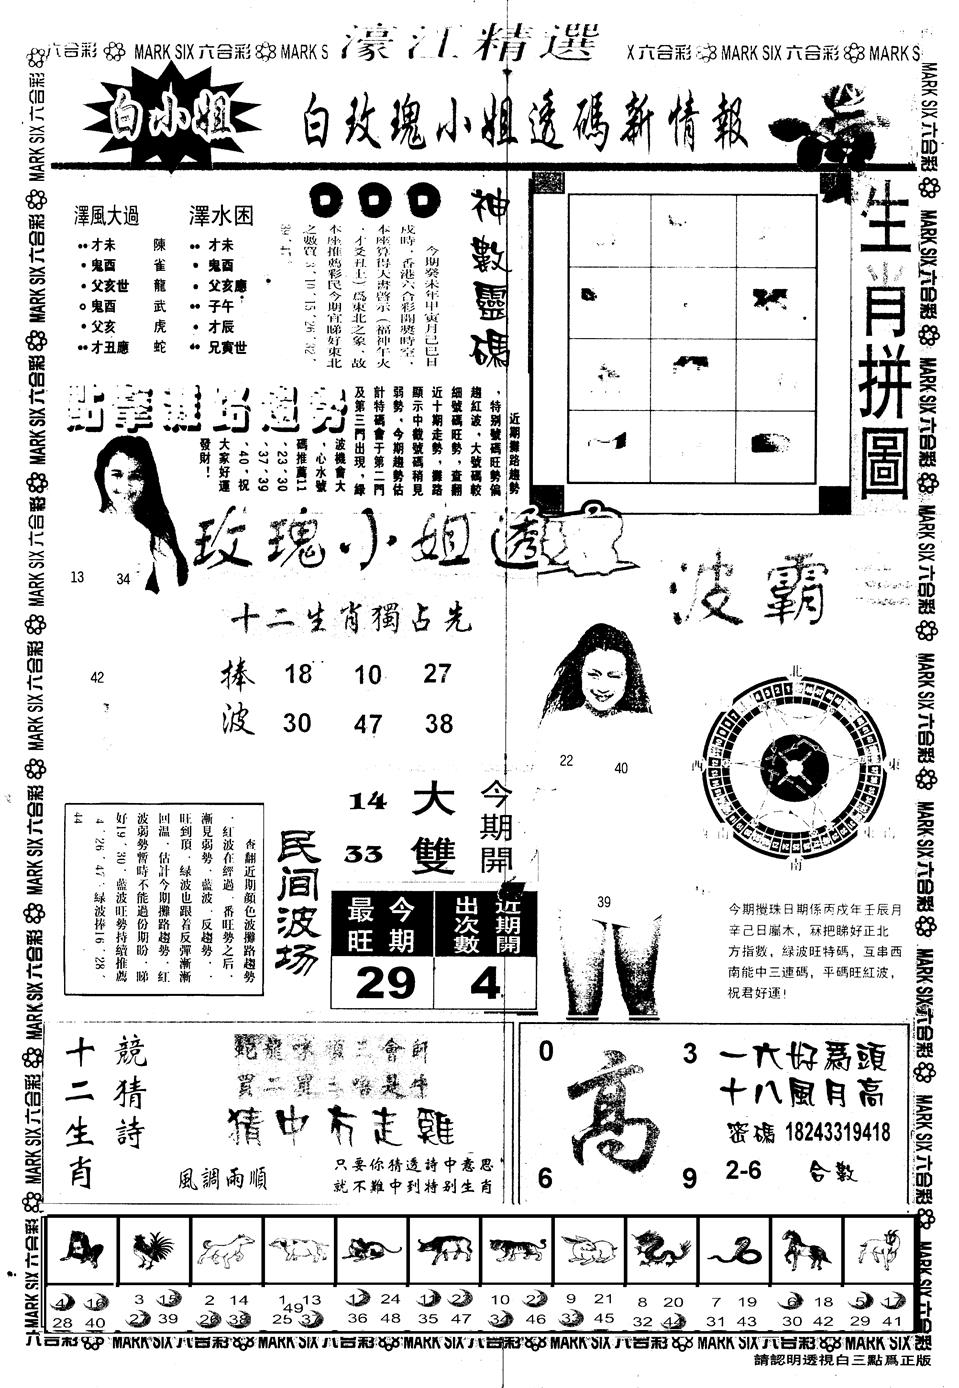 濠江精選
六合彩 MARK SIX 六合彩 MARK S
X 六合彩 MARK SIX 六合彩 MARK S
白小姐
白玫瑰小姐透碼新情報
澤風大過
才未 陳
鬼酉 雀
父亥世 龍
鬼酉 武
父亥 虎
才丑應 蛇
澤水困
才未
鬼酉
父亥應
子午
才辰
兄寅世
神數靈碼
今期癸未年甲寅月己巳日
戌時，香港六合彩開獎時空，
本座算得天書啓示（福神午火
，才爻丑土）爲東北之象，故
本座推薦彩民今期宜睇好東北
之數買3、10、15、26、32、
39、47。
生肖拼圖
點擎攤路趨勢
近期攤路趨勢
，特别號碼旺勢偏
趨紅波，大號碼較
細號碼旺勢，查翻
近十期走勢，攤路
顯示中截號碼稍見
弱勢，今期趨勢估
計特碼會于第二門
及第三門出現，緑
波機會大
，心水號
碼推薦11
、23、30
、37、39
、40，祝
大家好運
發財！
13 34
42
玫瑰小姐透
十二生肖獨占先
捧 18 10 27
波 30 47 38
波霸
22 40
39
北
西 東
南
14 大
33 雙
今期開
民间波场
最旺 今期
29
近期開出次數
4
查翻近期顔色波攤路趨勢
，紅波在經過一番旺勢之后，
漸見弱勢，藍波一反趨勢，
旺到頂，緑波也跟着反彈漸漸
回温，估計今期攤路趨勢，紅
波弱勢暫時不能過份期盼，睇
好19、30，藍波旺勢持續推薦
4、26、47，緑波捧16、28、
44
今期攪珠日期係丙戌年壬辰月
辛己日屬木，冧把睇好正北
方指數，緑波旺特碼，互串西
南能中三連碼，平碼旺紅波，
祝君好運！
十二生肖
競猜詩
買二買三唔是牛
猜中冇走雞
風調雨順
只要你猜透詩中意思
就不難中到特别生肖
0 3
高
6 9
一六好爲頭
十八風月高
密碼 18243319418
2-6 合數
4 16 28 40
3 15 27 39
2 14 26 38
1 13 49 25 37
12 24 36 48
11 23 35 47
10 22 34 46
9 21 33 45
8 20 32 44
7 19 31 43
6 18 30 42
5 17 29 41
請認明透視白三點爲正版